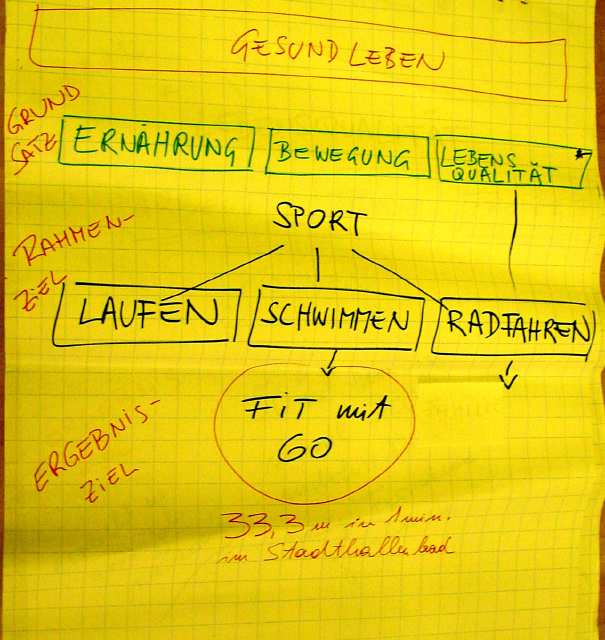 GESUND LEBEN
GRUND
SATZ
ERNÄHRUNG
BEWEGUNG
LEBENS
QUALITÄT
SPORT
RAHMEN-
ZIEL
LAUFEN
SCHWIMMEN
RADFAHREN
FiT mit
60
ERGEBNIS-
ZIEL
33,3 m in 1 min.
im Stadthallenbad